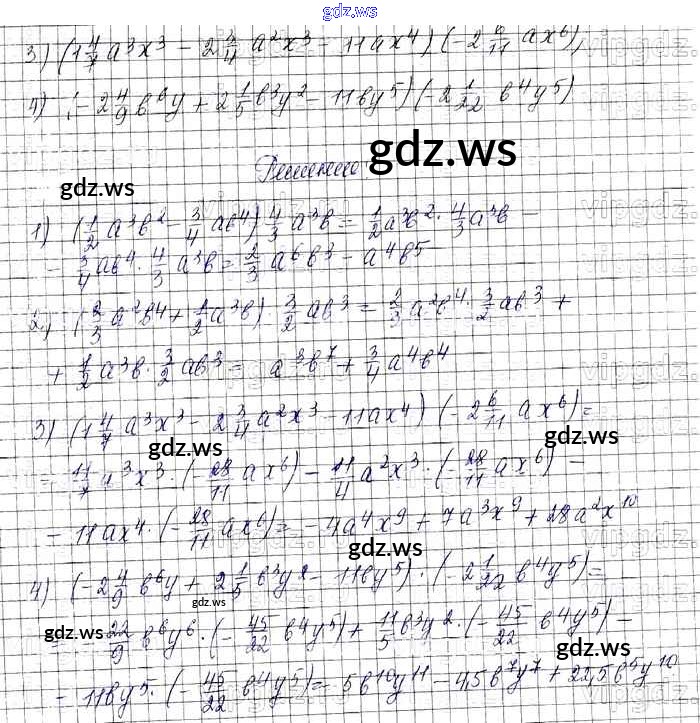 gdz.ws
3) (1 4/7 a³x³ - 2 3/4 a²x³ - 11ax⁴) (-2 6/11 ax⁶);
4) (-2 4/9 b⁶y + 2 1/5 b³y² - 11by⁵) (-2 1/22 b⁴y⁵)
Решение
gdz.ws
gdz.ws
1) (1/2 a³b² - 3/4 ab⁴) 4/3 a³b = 1/2 a³b² · 4/3 a³b -
- 3/4 ab⁴ · 4/3 a³b = 2/3 a⁶b³ - a⁴b⁵
2) (2/3 a²b⁴ + 1/2 a³b) · 3/2 ab³ = 2/3 a²b⁴ · 3/2 ab³ +
+ 1/2 a³b · 3/2 ab³ = a³b⁷ + 3/4 a⁴b⁴
3) (1 4/7 a³x³ - 2 3/4 a²x³ - 11ax⁴) (-2 6/11 ax⁶) =
gdz.ws
gdz.ws
= 11/7 a³x³ · (-28/11 ax⁶) - 11/4 a²x³ · (-28/11 ax⁶) -
- 11ax⁴ · (-28/11 ax⁶) = -4a⁴x⁹ + 7a³x⁹ + 28a²x¹⁰
gdz.ws
4) (-2 4/9 b⁶y + 2 1/5 b³y² - 11by⁵) · (-2 1/22 b⁴y⁵) =
gdz.ws
= -22/9 b⁶y⁶ · (-45/22 b⁴y⁵) + 11/5 b³y² · (-45/22 b⁴y⁵) -
gdz.ws
- 11by⁵ · (-45/22 b⁴y⁵) = 5b¹⁰y¹¹ - 4,5b⁷y⁷ + 22,5b⁵y¹⁰
gdz.ws